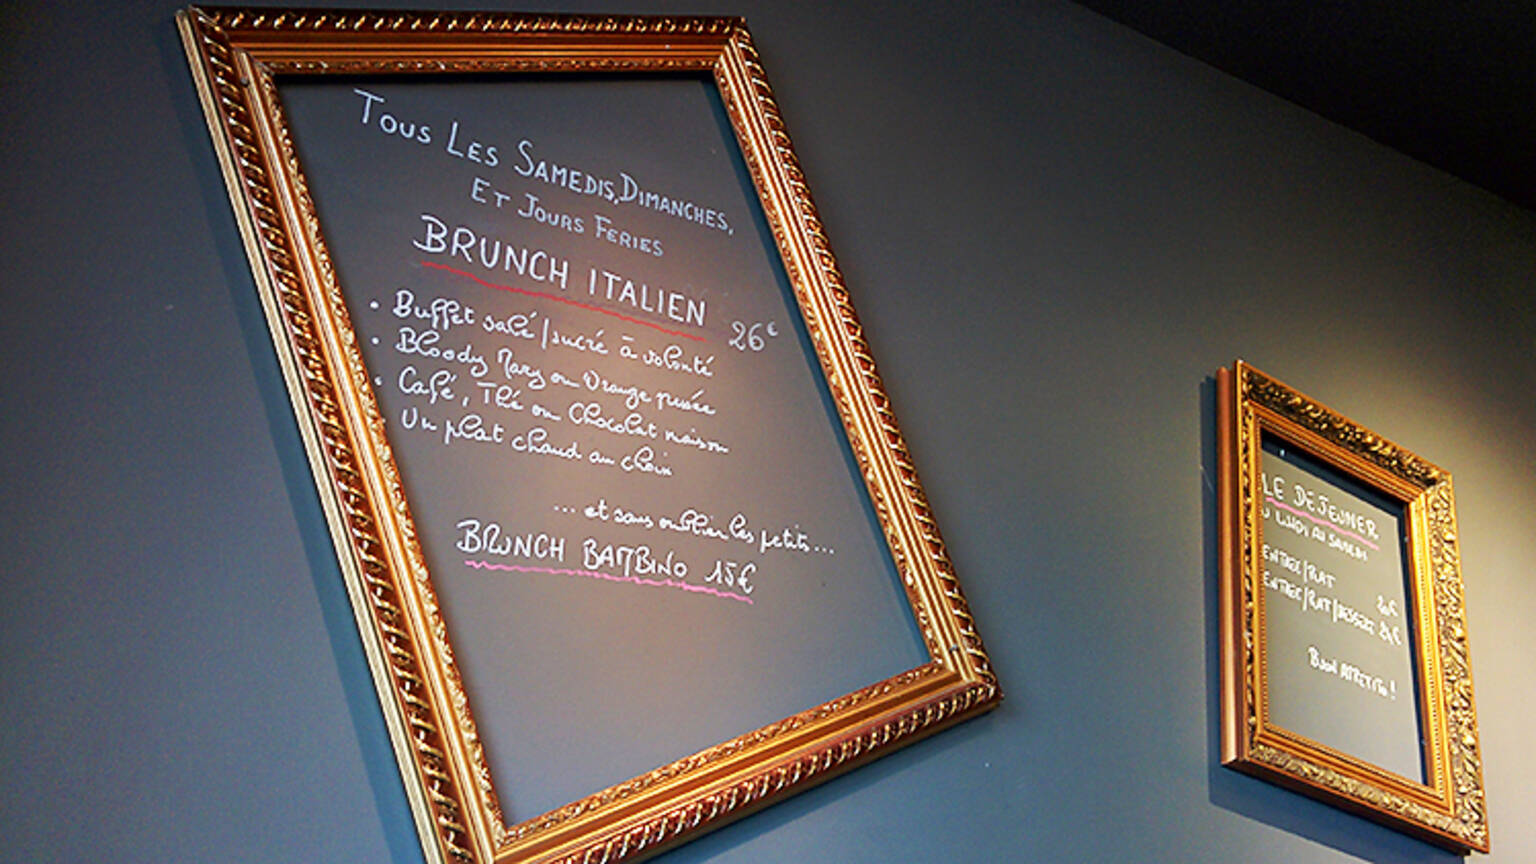 Tous Les Samedis, Dimanches,
Et Jours Feries
BRUNCH ITALIEN 26€
• Buffet salé/sucré à volonté
• Bloody Mary ou Orange pressée
• Café, Thé ou Chocolat maison
• Un plat chaud au choix
... et sans oublier les petits ...
BRUNCH BAMBINO 15€
LE DEJEUNER
U LUNDI AU SAMEDI
ENTREE/PLAT 20€
ENTREE/PLAT/DESSERT 24€
BUON APPETITO !